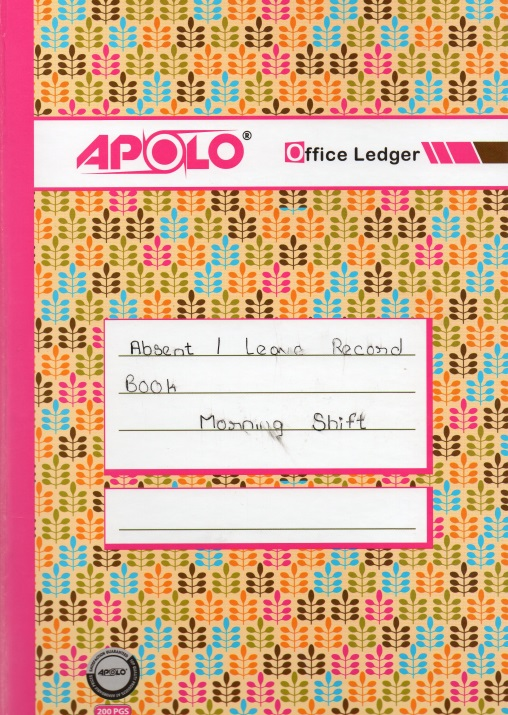 APOLO® Office Ledger
Absent / Leave Record
Book
Morning Shift
APOLO
200 PGS